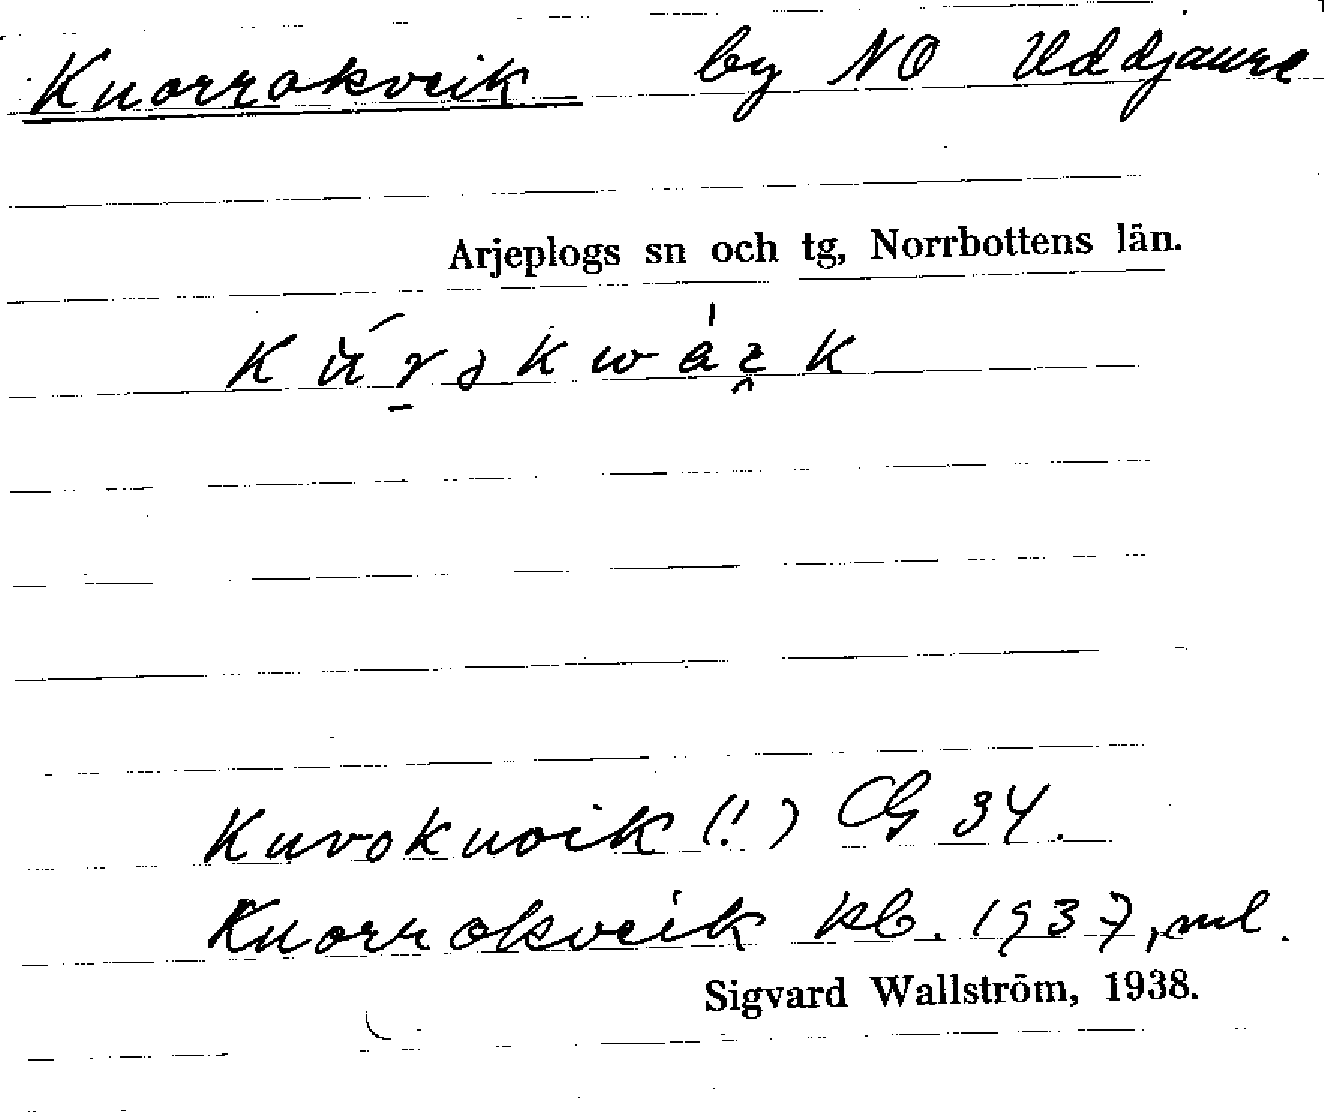 Kuorrokveik by NO Uddjaure
Arjeplogs sn och tg, Norrbottens län.
Kuvokuoik (!) CG 34.
Kuorrokveik kb. 1937, ml.
Sigvard Wallström, 1938.